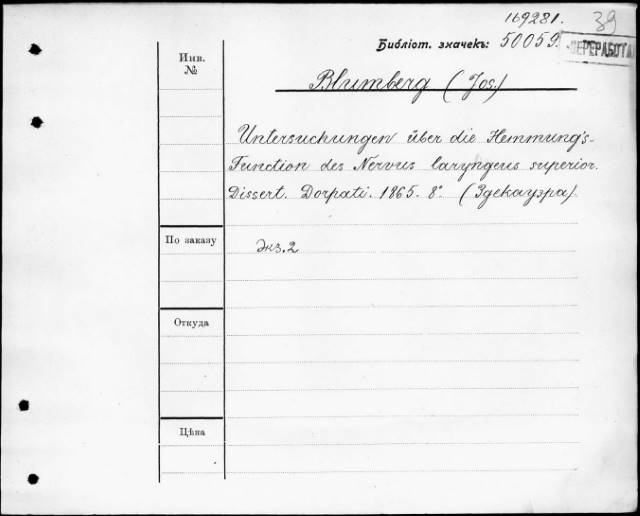 169281. 39
Библіот. значекъ: 50059.
ПЕРЕРАБОТА
Инв.
№
Blumberg (Jos.)
Untersuchungen über die Hemmung's-
Function des Nervus laryngeus superior.
Dissert. Dorpati. 1865. 8°. (Здекауэра).
По заказу
Экз. 2
Откуда
Цѣна